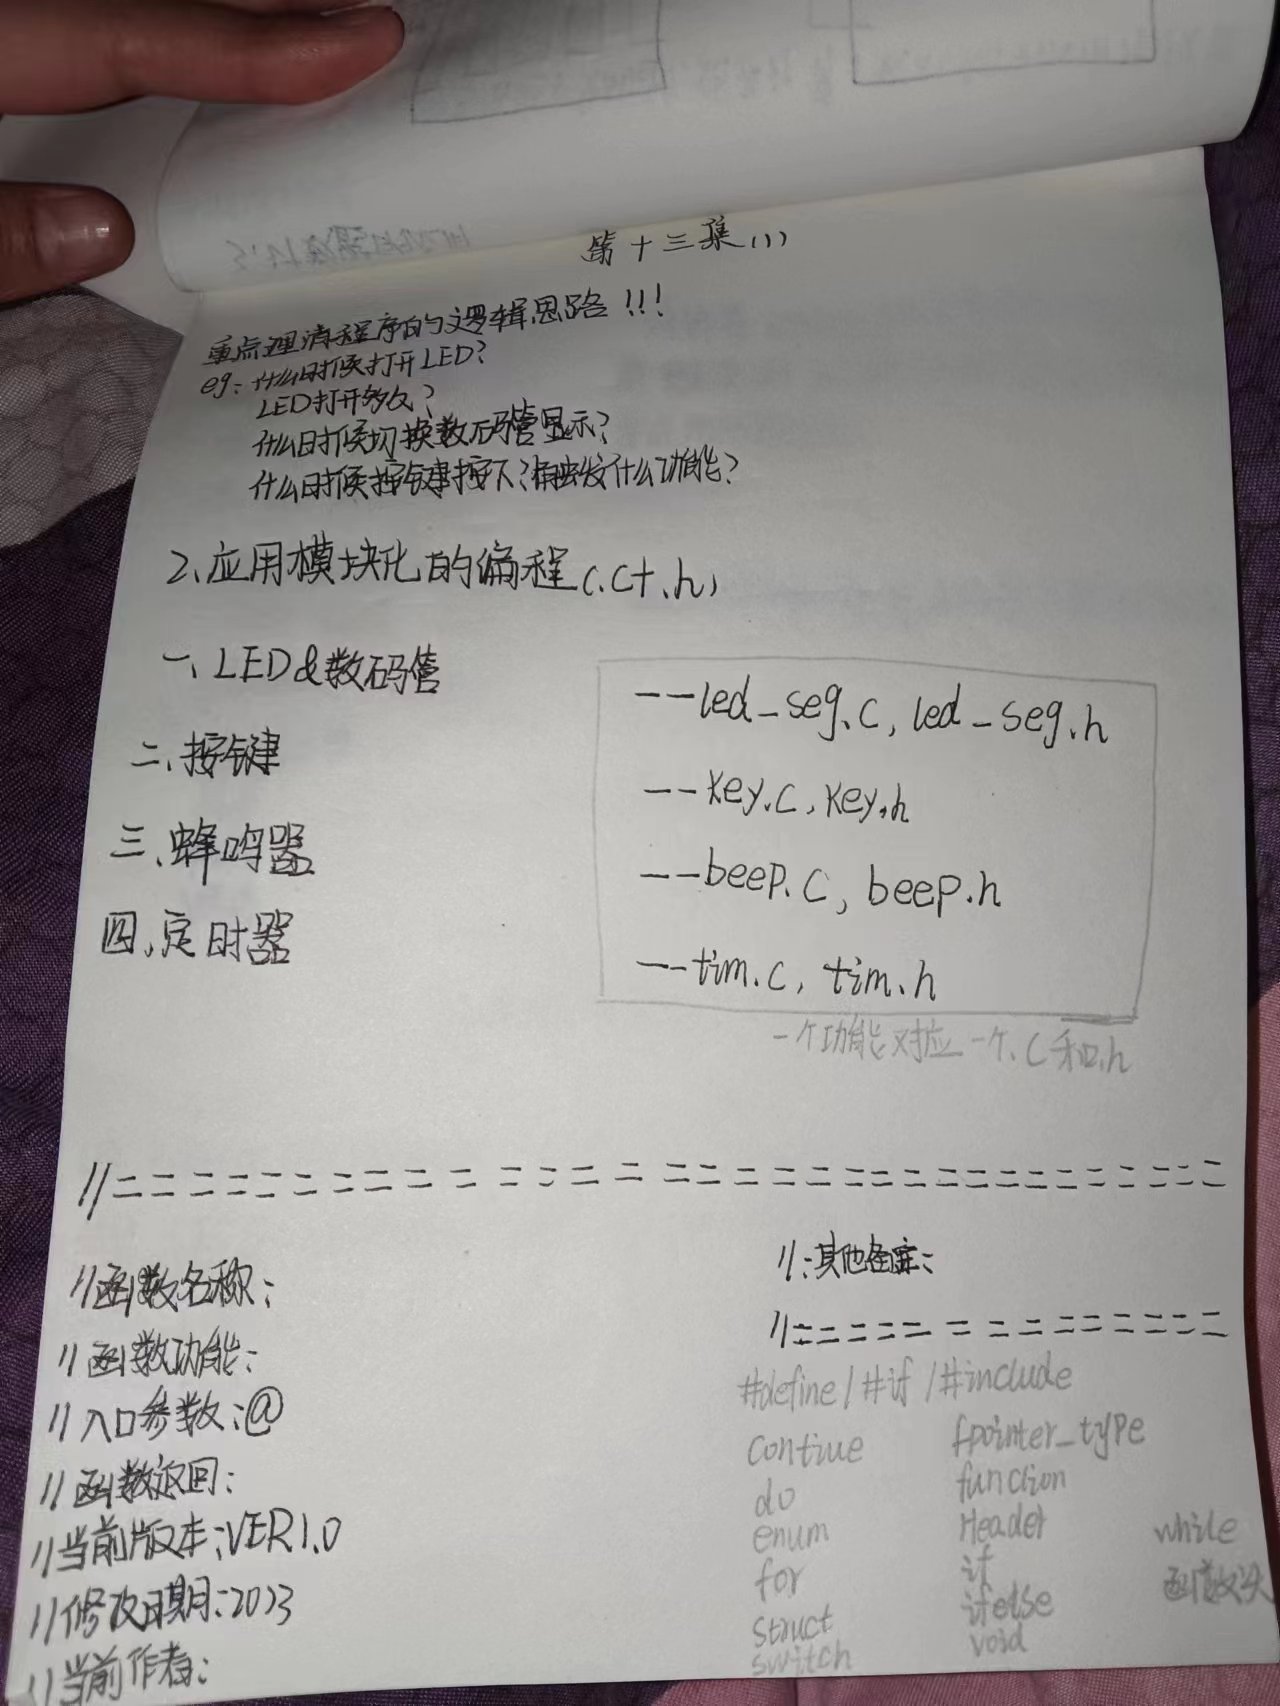 第十三集(1)
重点理清程序的逻辑思路!!!
eg:什么时候打开LED?
LED打开多久?
什么时候切换数码管显示?
什么时候按键按下?触发什么功能?
2、应用模块化的编程(.c+.h)
一、LED&数码管
二、按键
三、蜂鸣器
四、定时器
--led_seg.c, led_seg.h
--key.c, key.h
--beep.c, beep.h
--tim.c, tim.h
一个功能对应一个.c和.h
//==============================
//函数名称:
//函数功能:
//入口参数:@
//函数返回:
//当前版本:VER1.0
//修改日期:2023
//当前作者:
//:其他备注:
//=============
#define/#if/#include
contiue
do
enum
for
struct
switch
fpointer_type
function
Header
if
ifelse
void
while
函数头